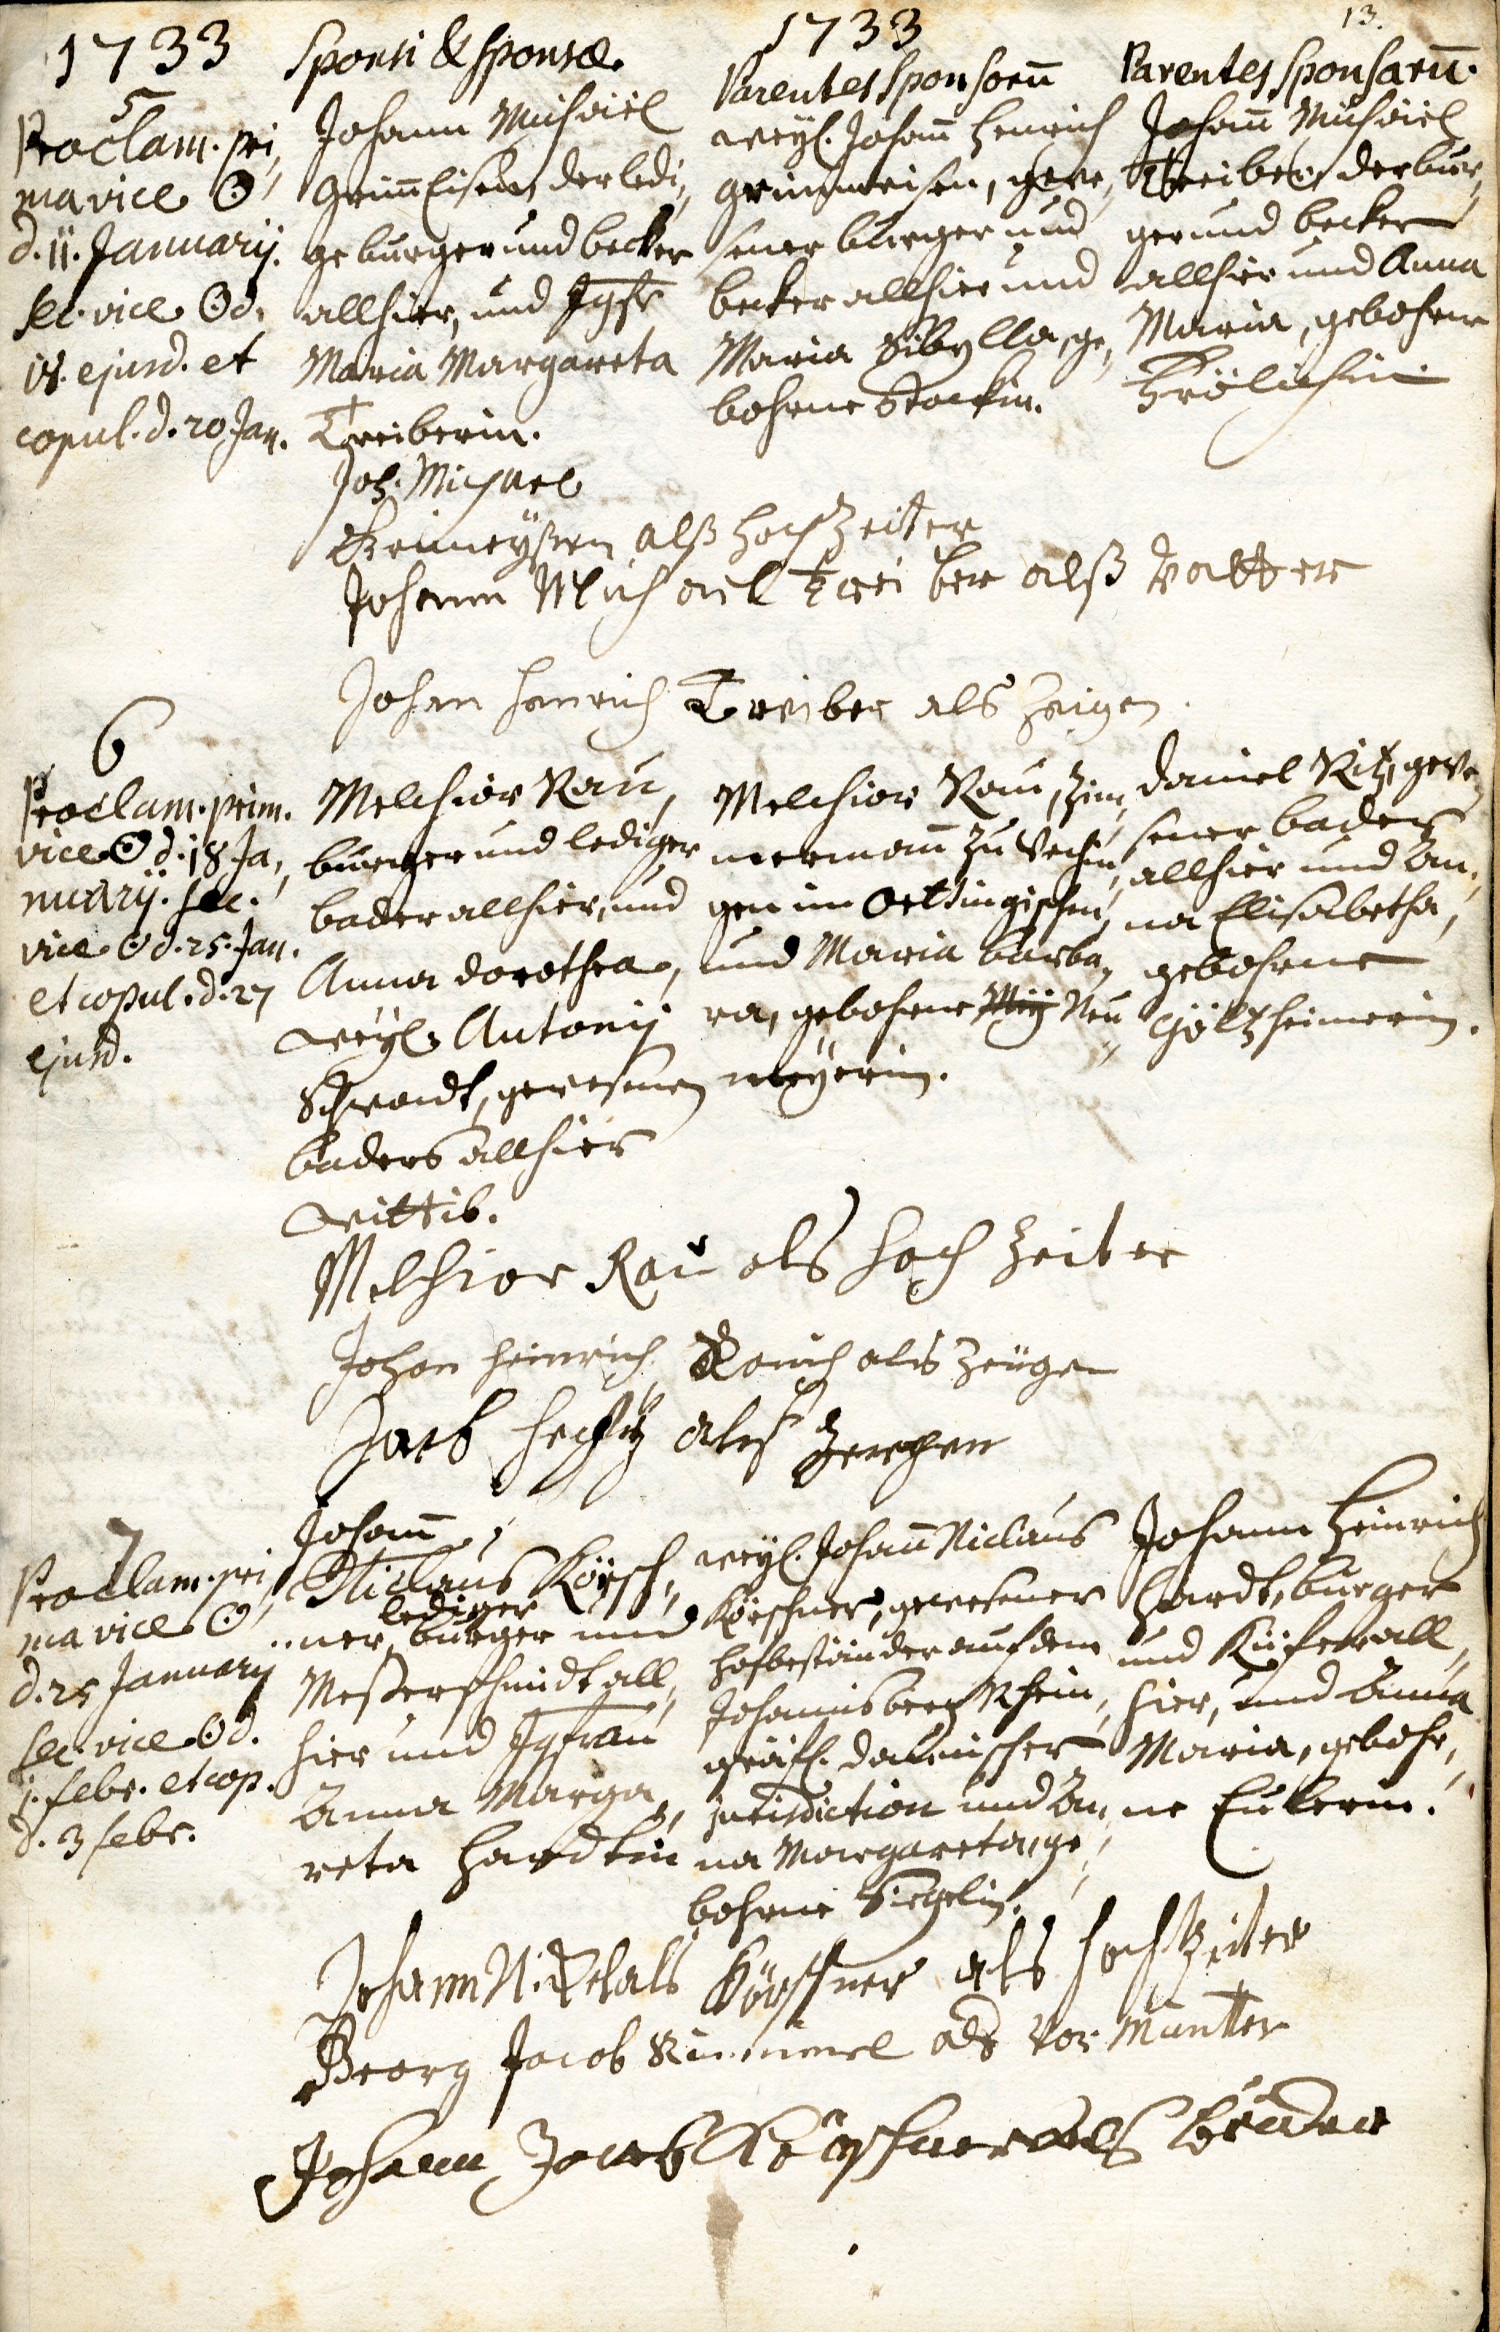 13.
1733
Sponsi & Sponsae.
1733
Parentes Sponsorū
Parentes Sponsarū.
5
Proclam. pri,
ma vice ☉
d. 11. Januarij.
sec. vice ☉ d.
18. ejusd. et
copul. d. 20 Jan.
Johann Michael
Grim̄Eisen, der ledi,
ge burger und becker
allhier, und Jgfr
Maria Margareta
Treiberin.
weyl. Johan̄ Henrich
Grim̄eisen, gewe,
sener burger und
becker allhier und
Maria Sibylla, ge,
bohrne Stockin.
Johan̄ Michael
Treiber, der bur,
ger und becker
allhier und Anna
Maria, gebohrne
Frölichin.
Joh. Michael
Grimeyßen alß hochzeiter
Johann Michael Treiber alß Vatter
Johan Henrich Treiber als Zeigen.
6
Proclam. prim.
vice ☉ d. 18. Ja,
nuarij. sec.
vice ☉ d. 25. Jan.
et copul. d. 27
ejusd.
Melchior Rau,
burger und lediger
bader allhier, und
Anna Dorothea,
weyl. Antonij
Schwardt, gewesenen
baders allhier
Wittib.
Melchior Rau, Zim,
mermann̄ zu
gen im Oettingischen,
und Maria Barba,
ra, gebohrne Neu
meÿerin.
Daniel Ritz, gewe,
sener bader
allhier und An,
na Elisabetha,
gebohrne
Göltzheimerin.
Melchior Rau als hoch Zeiter
Johan Heinrich Rauch als Zeüge
Jacob als
7
Proclam. pri,
ma vice ☉
d. 25 January
sec. vice ☉ d.
1. febr. et cop.
d. 3 febr.
Johan̄
Niclaus Körsch,
lediger
ner, burger und
Messerschmidt all,
hier und Jgfrau
Anna Marga,
reta Hardtin
weyl. Johan̄ Niclaus
Körschner, gewesener
hofbeständer auf dem
Johannisberg Rhein,
gräfl. Daunischer
jurisdiction und An,
na Margareta, ge,
bohrne Siegelin.
Johann Heinrich
Hardt, burger
und Küfer all,
hier, und Anna
Maria, gebohr,
ne Eulerin.
Johann Nickelals Körschner als hochzeiter
Georg Jacob Kimmel als Vor Muntter
Johann Jacob Körschner als bruder